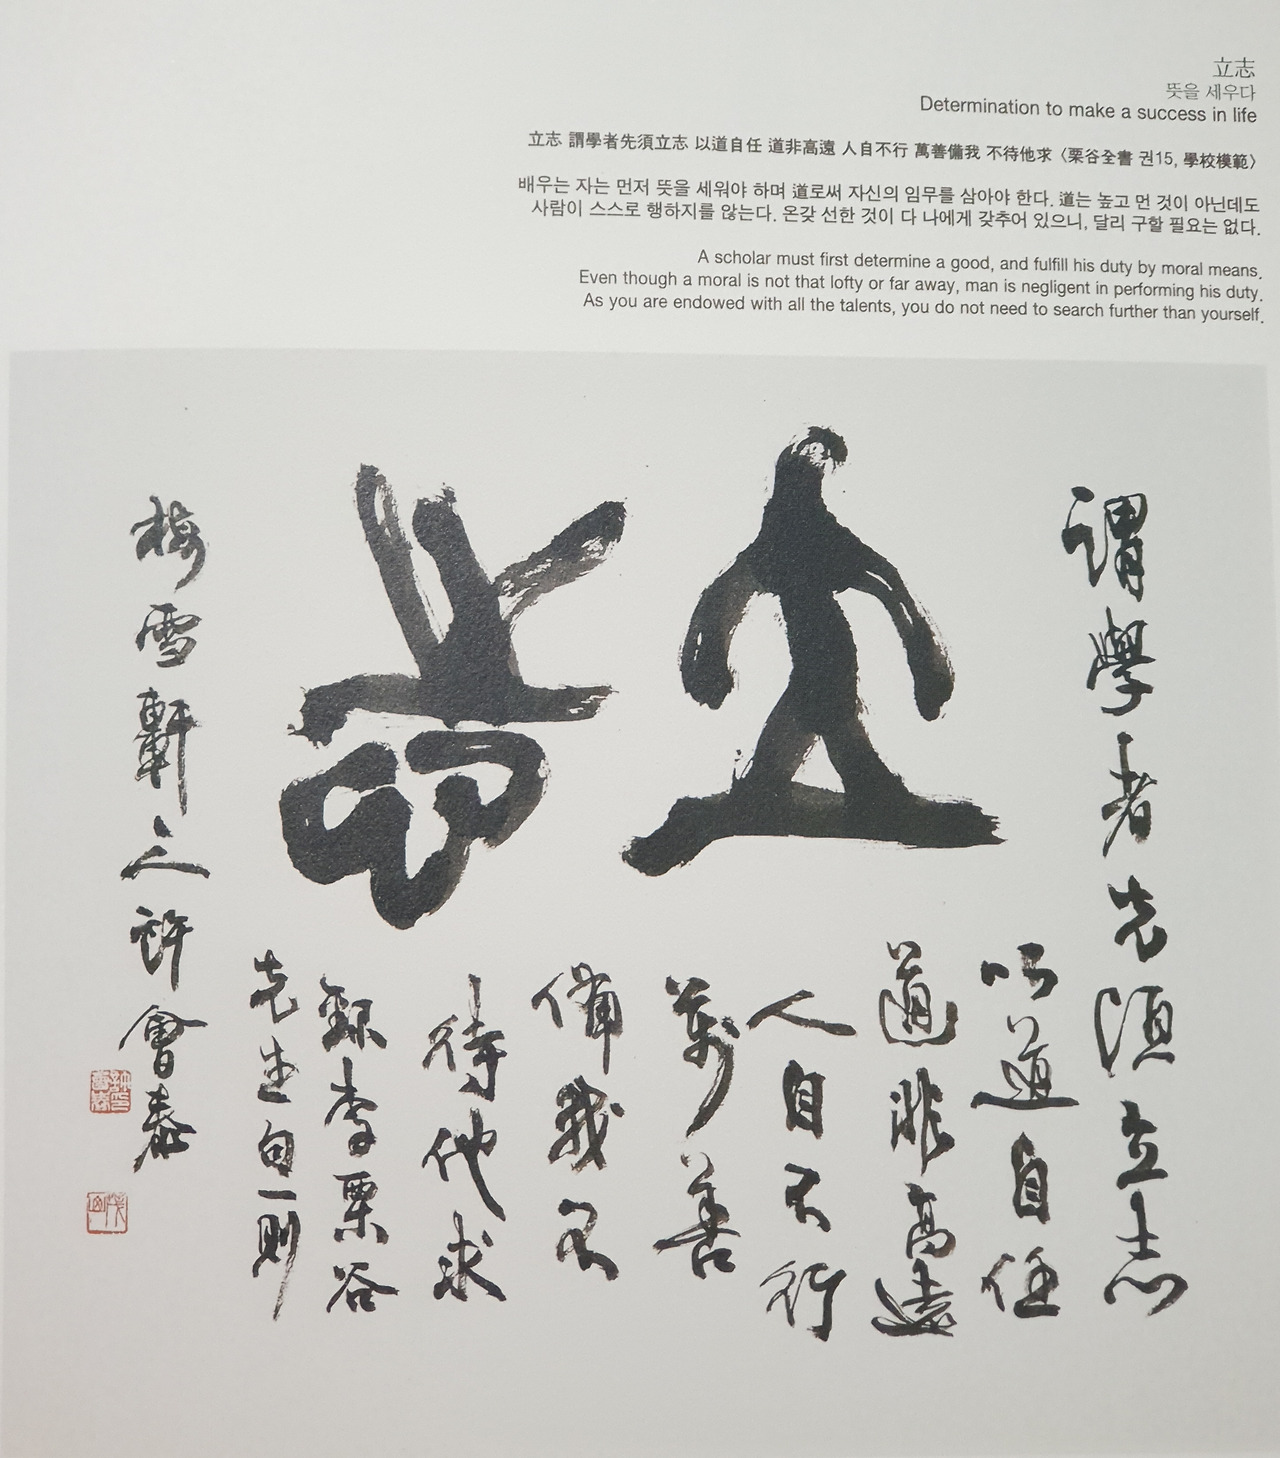 立志
뜻을 세우다
Determination to make a success in life
立志 謂學者先須立志 以道自任 道非高遠 人自不行 萬善備我 不待他求 〈栗谷全書 권15, 學校模範〉
배우는 자는 먼저 뜻을 세워야 하며 道로써 자신의 임무를 삼아야 한다. 道는 높고 먼 것이 아닌데도
사람이 스스로 행하지를 않는다. 온갖 선한 것이 다 나에게 갖추어 있으니, 달리 구할 필요는 없다.
A scholar must first determine a good, and fulfill his duty by moral means.
Even though a moral is not that lofty or far away, man is negligent in performing his duty.
As you are endowed with all the talents, you do not need to search further than yourself.
立志
謂學者先須立志
以道自任
道非高遠
人自不行
萬善
備我不
待他求
錄李栗谷
先生句一則
梅雪軒主人許會泰